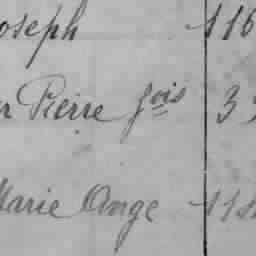 oseph 116
r Pierre fois 3
Marie Ange 11